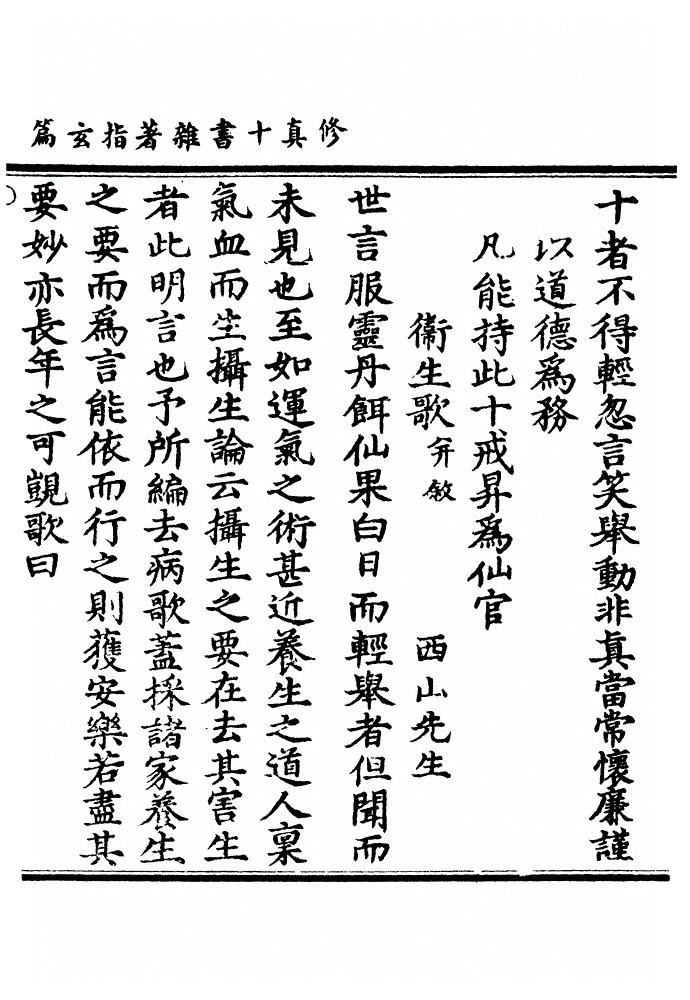 修真十書雜著指玄篇
十者不得輕忽言笑舉動非真當常懷廉謹
以道德爲務
凡能持此十戒昇爲仙官
衞生歌并敘 西山先生
世言服靈丹餌仙果白日而輕舉者但聞而
未見也至如運氣之術甚近養生之道人稟
氣血而生攝生論云攝生之要在去其害生
者此明言也予所編去病歌蓋採諸家養生
之要而爲言能依而行之則獲安樂若盡其
要妙亦長年之可覬歌曰